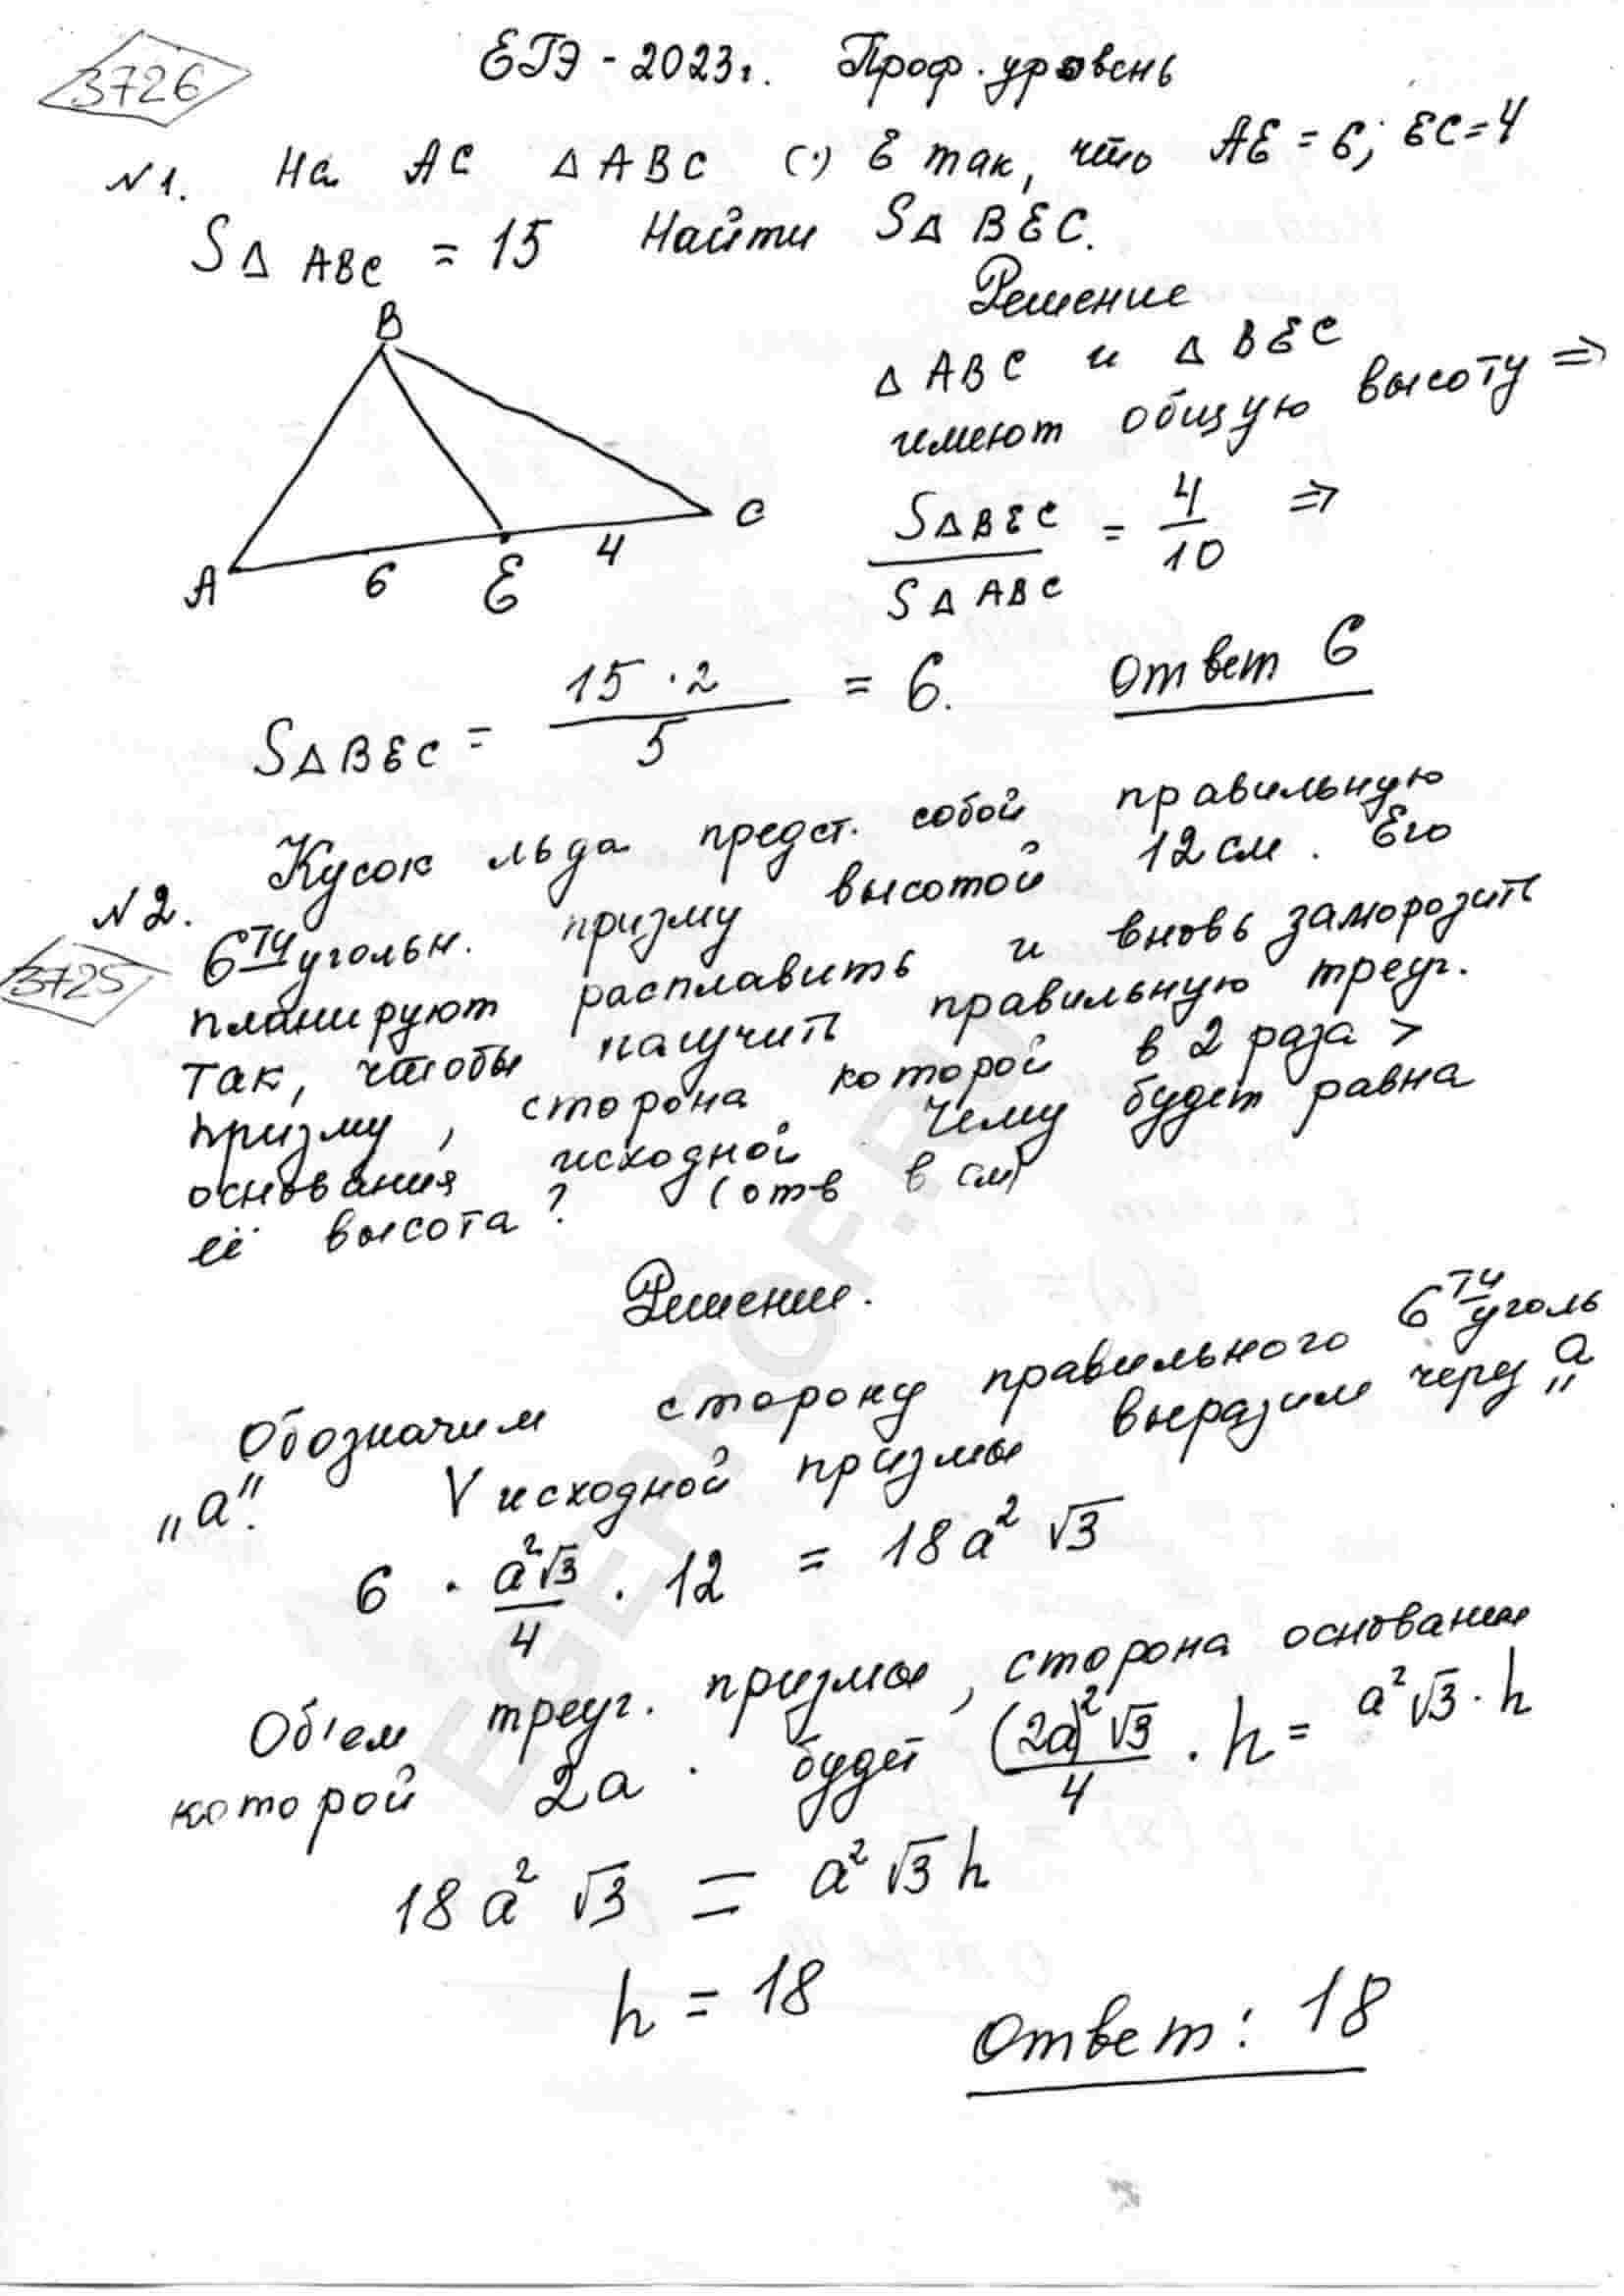 3726
ЕГЭ - 2023г. Проф. уровень
№1. На AC △ABC (·) E так, что AE = 6; EC = 4
S△ABC = 15 Найти S△BEC.
Решение
B
△ABC и △BEC
имеют общую высоту ⇒
A 6 E 4 C
S△BEC / S△ABC = 4/10 ⇒
S△BEC = 15·2/5 = 6. Ответ 6
№2. Кусок льда предст. собой правильную
6ти угольн. призму высотой 12 см. Его
3725
планируют расплавить и вновь заморозить
так, чтобы получить правильную треуг.
призму, сторона которой в 2 раза >
основания исходной. Чему будет равна
её высота? (отв в см)
Решение.
Обозначим сторону правильного 6ти уголь
„a". V исходной призмы выразим через „a
6 · a²√3/4 · 12 = 18a²√3
Об'ем треуг. призмы, сторона основания
которой 2a. будет (2a)²√3/4 · h = a²√3 · h
18a²√3 = a²√3 h
h = 18
Ответ: 18
EGEPROF.RU